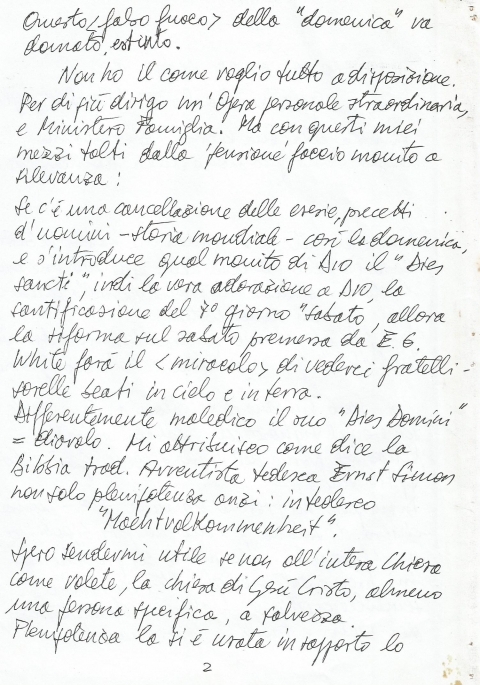 Questo <falso fuoco> della "domenica" va
domato, estinto.
Non ho il come voglio tutto a disposizione.
Per di più dirigo un' Opera personale straordinaria,
e Ministero Famiglia. Ma con questi miei
mezzi tolti dalla 'pensione' faccio monito a
rilevanza:
Se c'è una cancellazione delle eresie, precetti
d'uomini - storia mondiale - così la domenica,
e s'introduce qual monito di DIO il "Dies
sancti", indi la vera adorazione a DIO, la
santificazione del 7° giorno "sabato", allora
la riforma sul sabato premessa da E. G.
White farà il <miracolo> di vederci fratelli -
sorelle beati in cielo e in terra.
Differentemente maledico il suo "Dies Domini"
= diavolo. Mi attribuisco come dice la
Bibbia trad. Avventista tedesca Ernst Simon
non solo plenipotenza anzi: in tedesco
"Machtvolkommenheit".
Spero rendermi utile se non all'intera Chiesa
come volete, la chiesa di Gesù Cristo, almeno
una persona specifica, a salvezza.
Plenipotenza la si è usata in rapporto lo
2